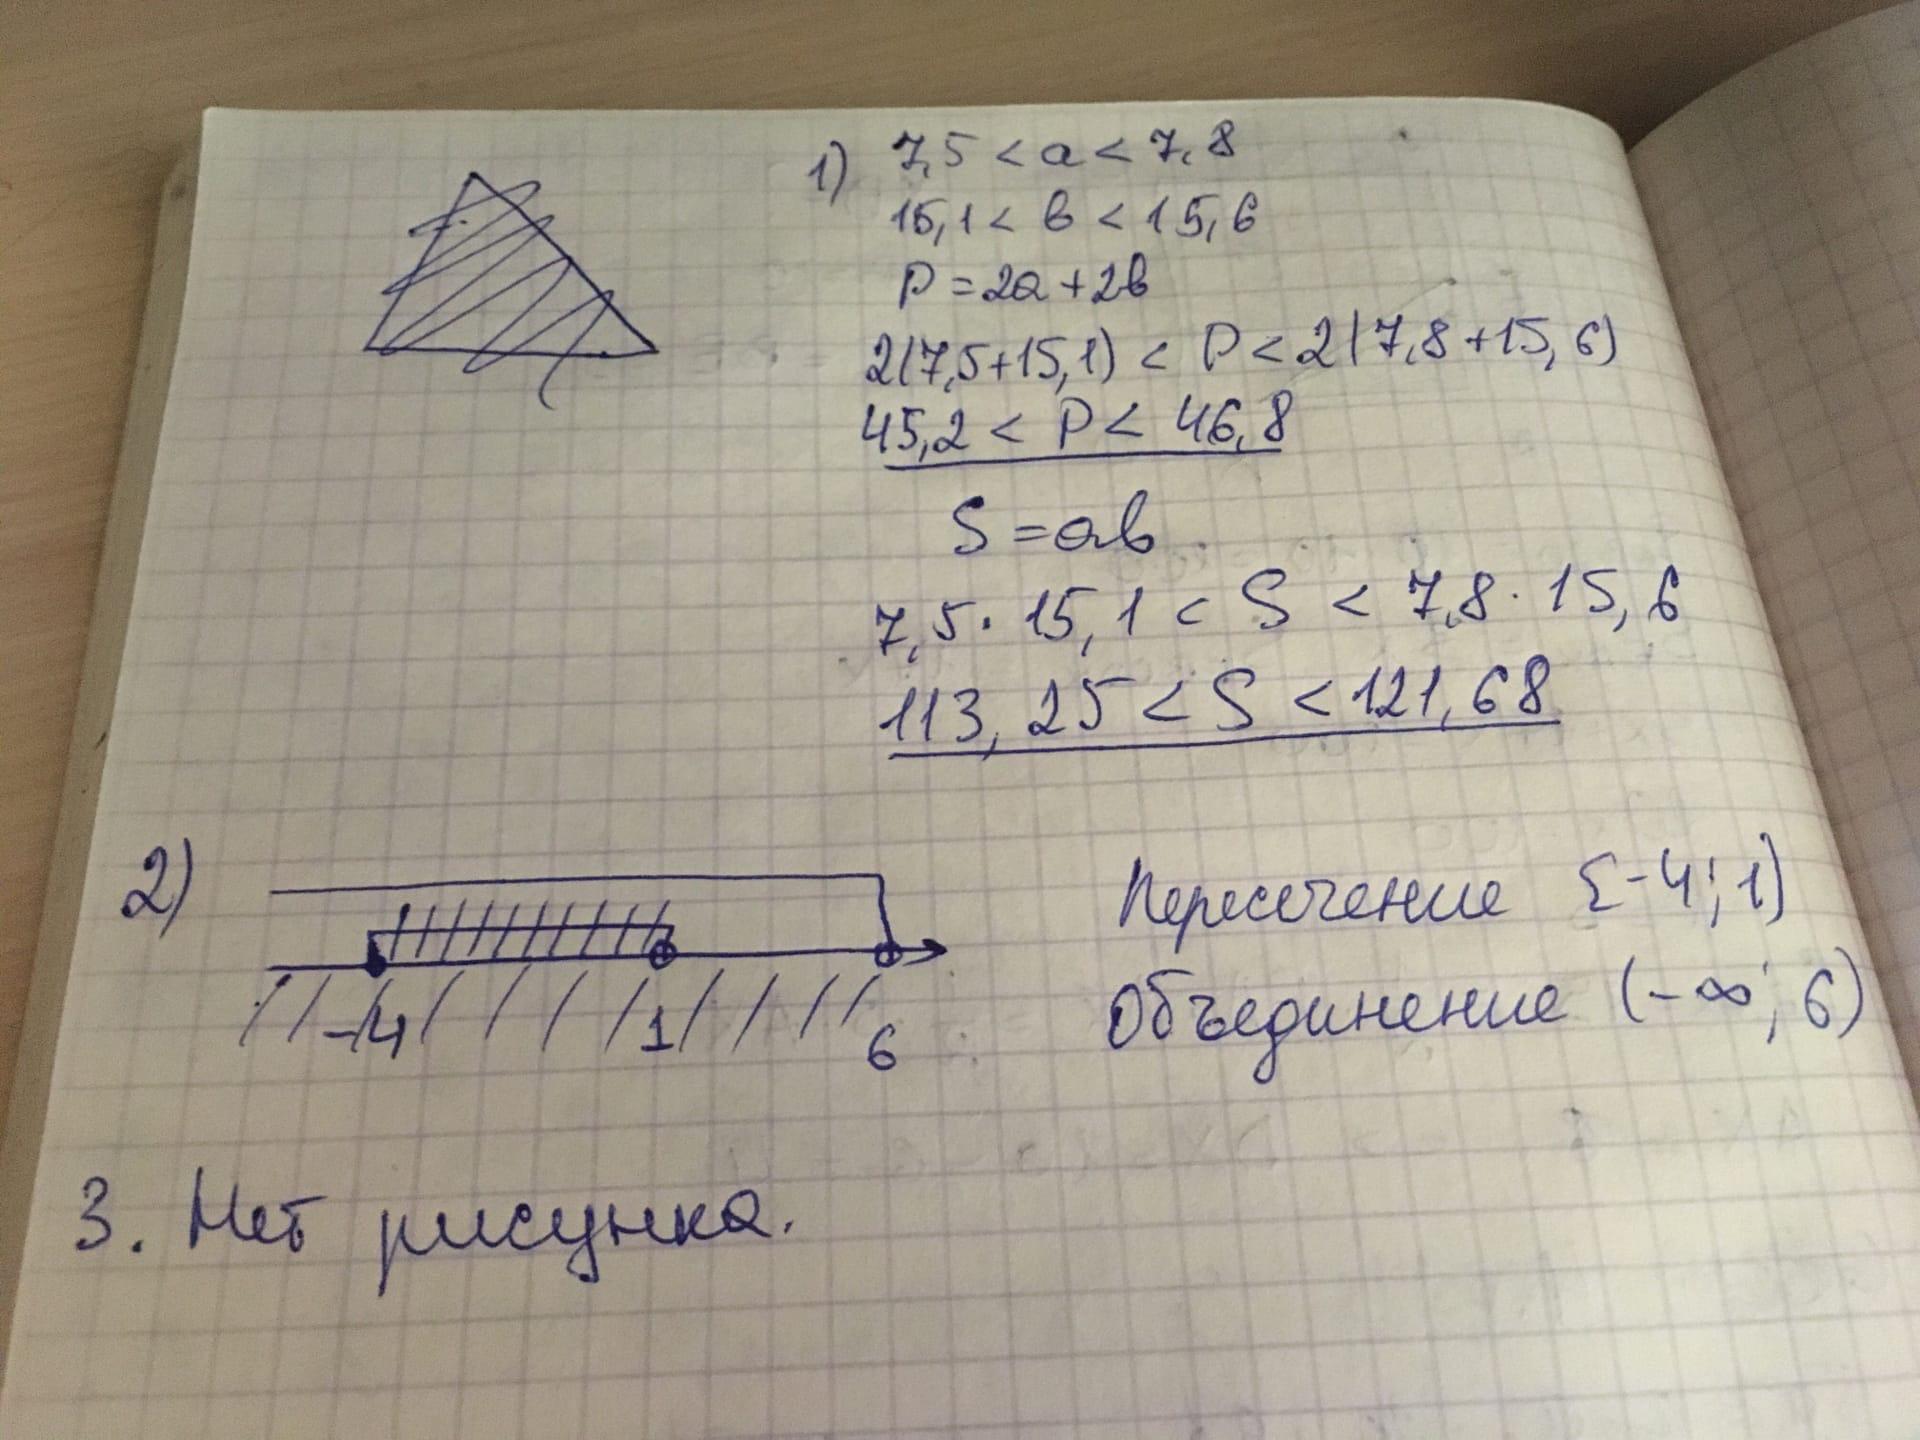 1) 7,5 < a < 7,8
15,1 < b < 15,6
P = 2a + 2b
2(7,5+15,1) < P < 2(7,8+15,6)
45,2 < P < 46,8
S = ab
7,5 · 15,1 < S < 7,8 · 15,6
113,25 < S < 121,68
2)
Пересечение [-4; 1)
Объединение (-∞; 6)
-4 1 6
3. Нет рисунка.